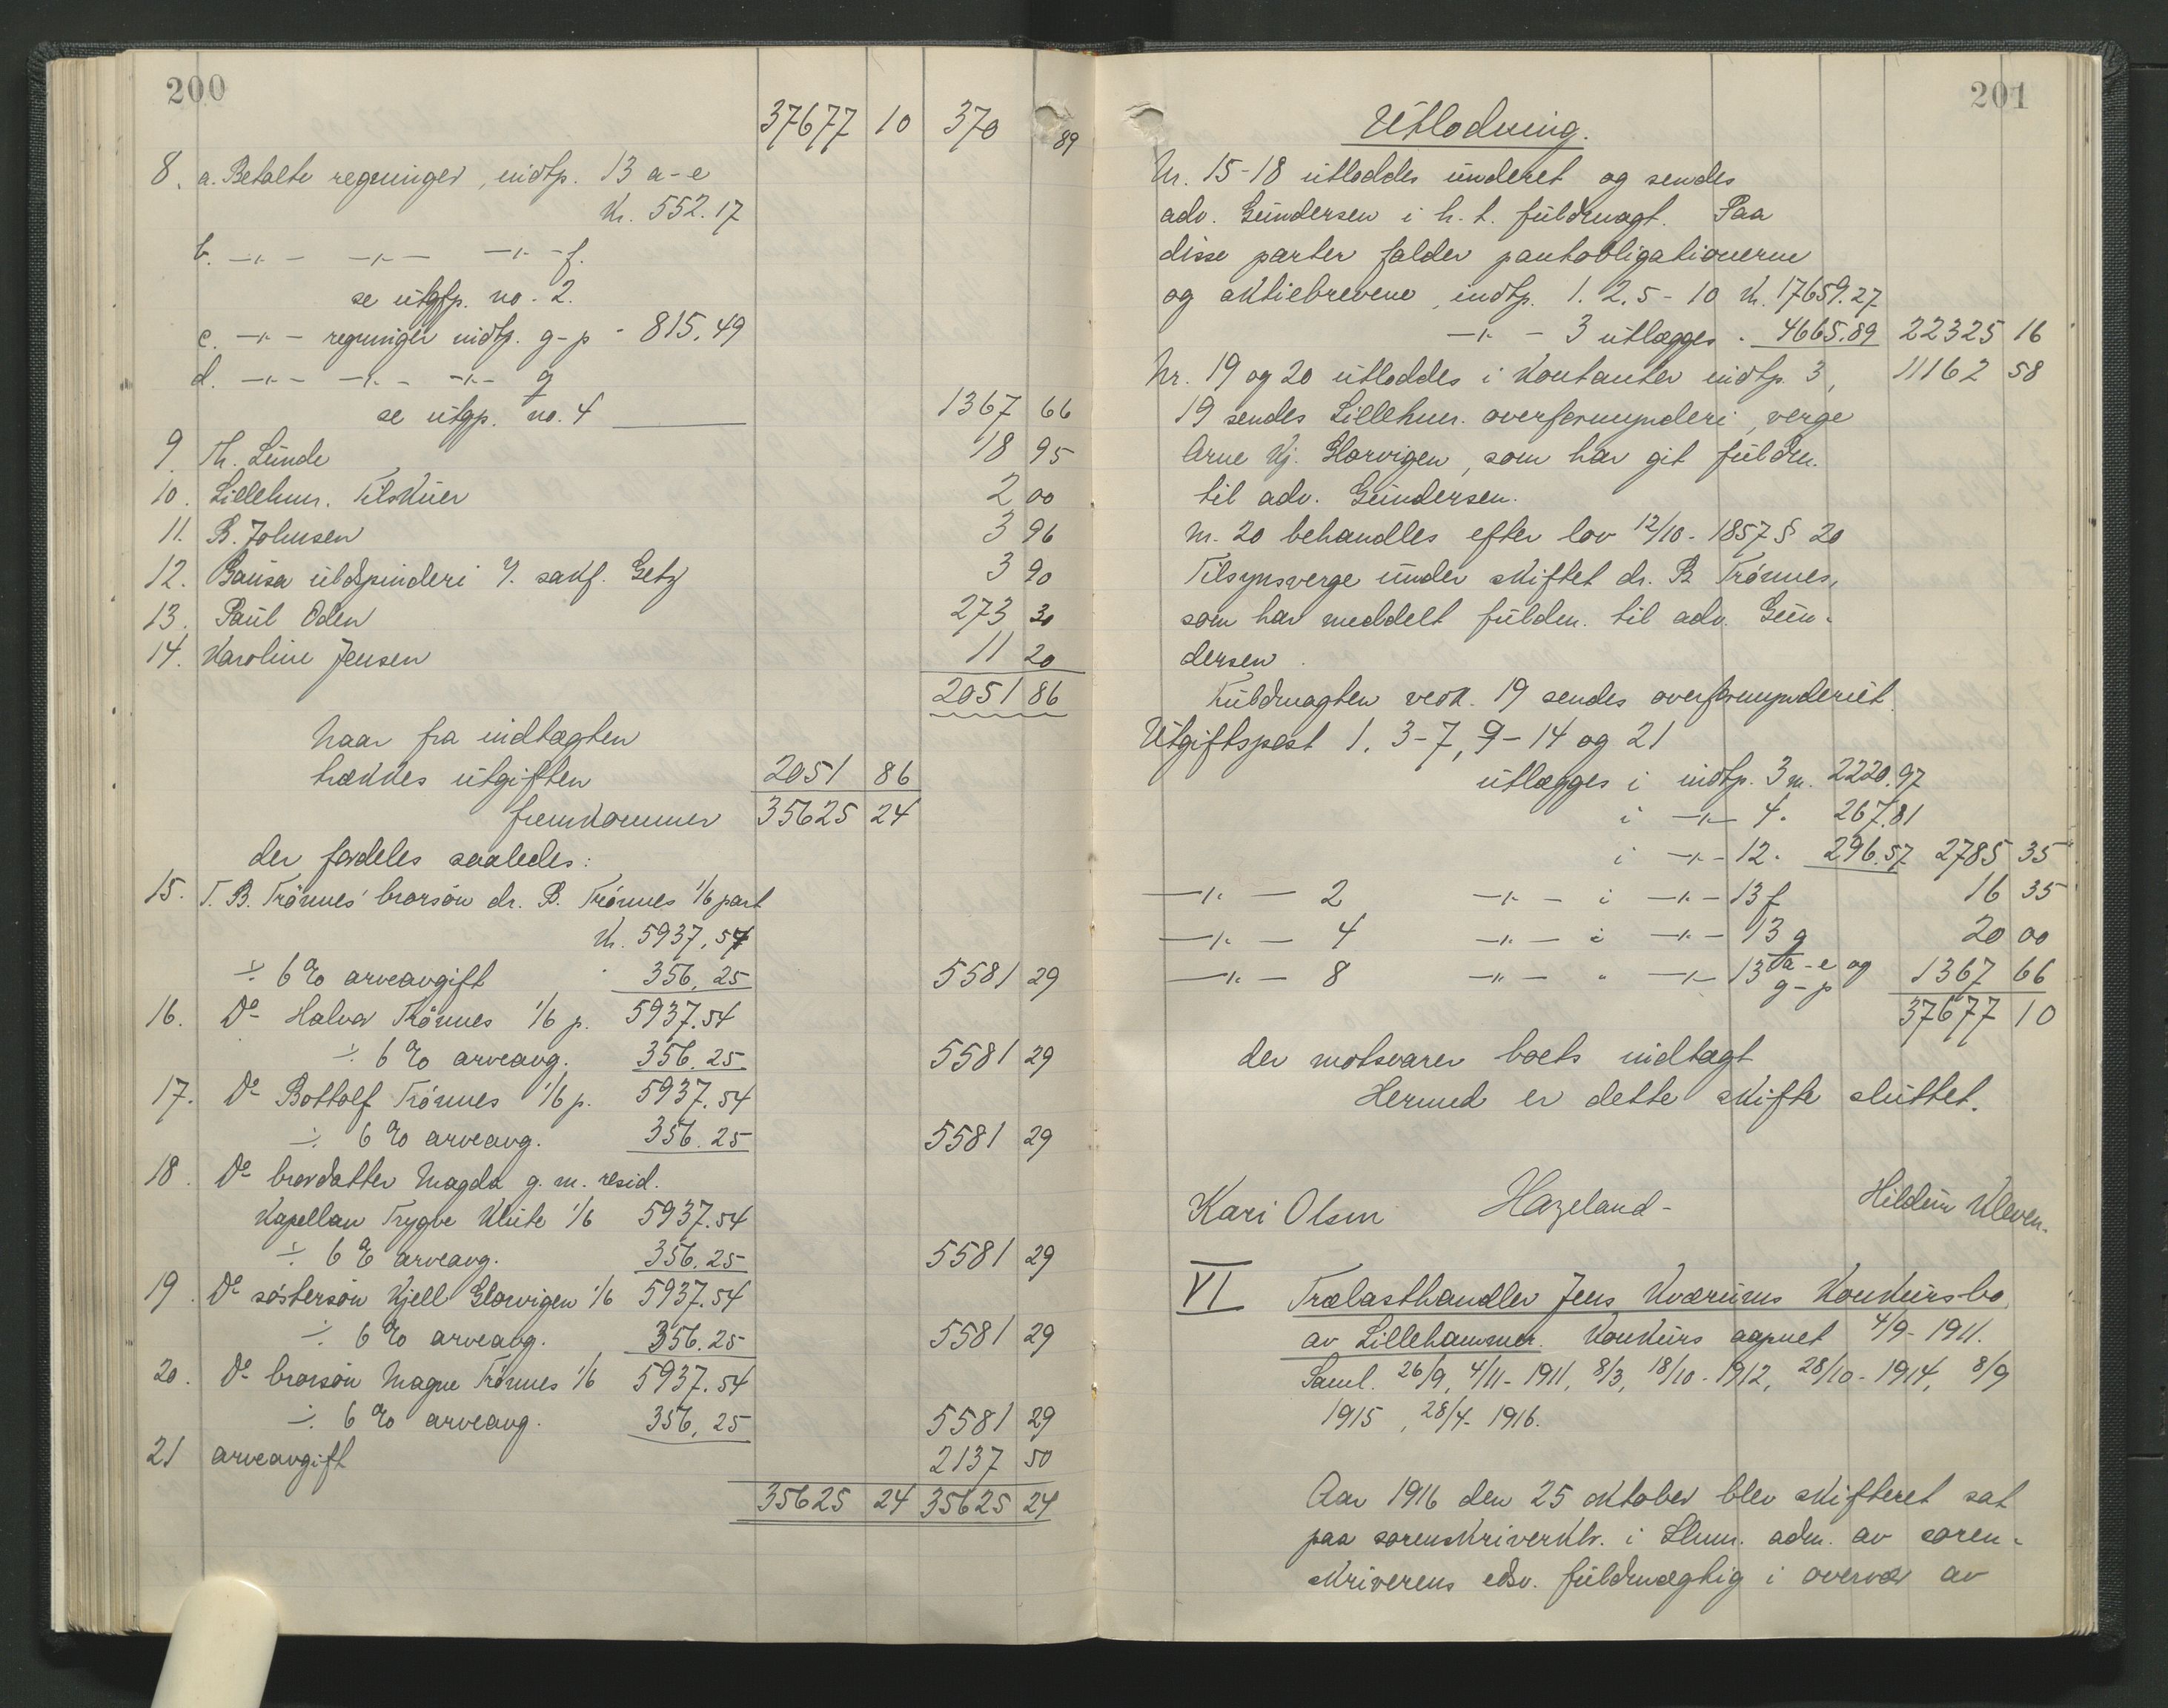 200
37677 10 370 89
8. a. Betalte regninger, indtp. 13 a-e
Kr. 552.17
b. -"- -"- -"- f.
se utgp. no. 2.
c. -"- regninger indtp. g-p - 815.49
d. -"- -"- -"- q
se utgp. no. 4 1367 66
9. Th. Lunde 18 95
10. Lillehm. Tilskuer 2 00
11. B. Johnsen 3 96
12. Bausa uldspinderi v. sakf. Getz 3 90
13. Paul Oden 273 30
14. Karoline Jensen 11 20
2051 86
Naar fra indtægten
trækkes utgiften 2051 86
fremkommer 35625 24
der fordeles saaledes:
15. T. B. Trönnes' brorsön dr. B. Trönnes 1/6 part
Kr. 5937.54
÷ 6 % arveavgift - 356.25 5581 29
16. Do Halvor Trönnes 1/6 p. 5937.54
÷ 6 % arveavg. 356.25 5581 29
17. Do Bottolf Trönnes 1/6 p. 5937.54
÷ 6 % arveavg. 356.25 5581 29
18. Do brordatter Magda g. m. resid.
Kapellan Trygve Klüte 1/6 5937.54
÷ 6 % arveavg. 356.25 5581 29
19. Do søstersön Kjell Glorvigen 1/6 5937.54
÷ 6 % arveavg. 356.25 5581 29
20. Do brorsön Magne Trönnes 1/6 5937.54
÷ 6 % arveavg. 356.25 5581 29
21 arveavgift 2137 50
35625 24 35625 24
201
Utlodning.
Nr. 15-18 utloddes underet og sendes
adv. Gundersen i h. t. fuldmagt. Paa
disse parter falder pantobligationerne
og aktiebrevene, indtp. 1. 2. 5-10 Kr. 17659.27
-"- - 3 utlægges - 4665.89 22325 16
Nr. 19 og 20 utloddes i kontanter indtp. 3, 11162 58
19 sendes Lillehm. overformynderi, verge
Arne Kj. Glorvigen, som har git fuldm.
til adv. Gundersen.
Nr. 20 behandles efter lov 12/10-1857 § 20
Tilsynsverge under skiftet dr. B Trönnes,
som har meddelt fuldm. til adv. Gun-
dersen.
Fuldmagten vedk. 19 sendes overformynderiet.
Utgiftspost 1, 3-7, 9-14 og 21
utlægges i indtp. 3 m. 2220.97
i -"- 4 - 267.81
i -"- 12 - 296.57 2785 35
-"- 2 -"- i -"- 13 f 16 35
-"- 4 -"- i -"- 13 q 20 00
-"- 8 -"- " -"- 13 a-e og g-p 1367 66
37677 10
der motsvarer boets indtægt
Hermed er dette skifte sluttet.
Kari Olsen Hazeland- Hildur Kleven.
VI Trælasthandler Jens Kværums Konkursbo
av Lillehammer. Konkurs aapnet 4/9-1911.
Saml. 26/9, 4/11-1911, 8/3, 18/10-1912, 28/10-1914, 8/9
1915, 28/4-1916.
Aar 1916 den 25 oktober blev skifteret sat
paa sorenskriverktr. i Lhm. adm. av soren-
skriverens edsv. fuldmægtig i overvær av